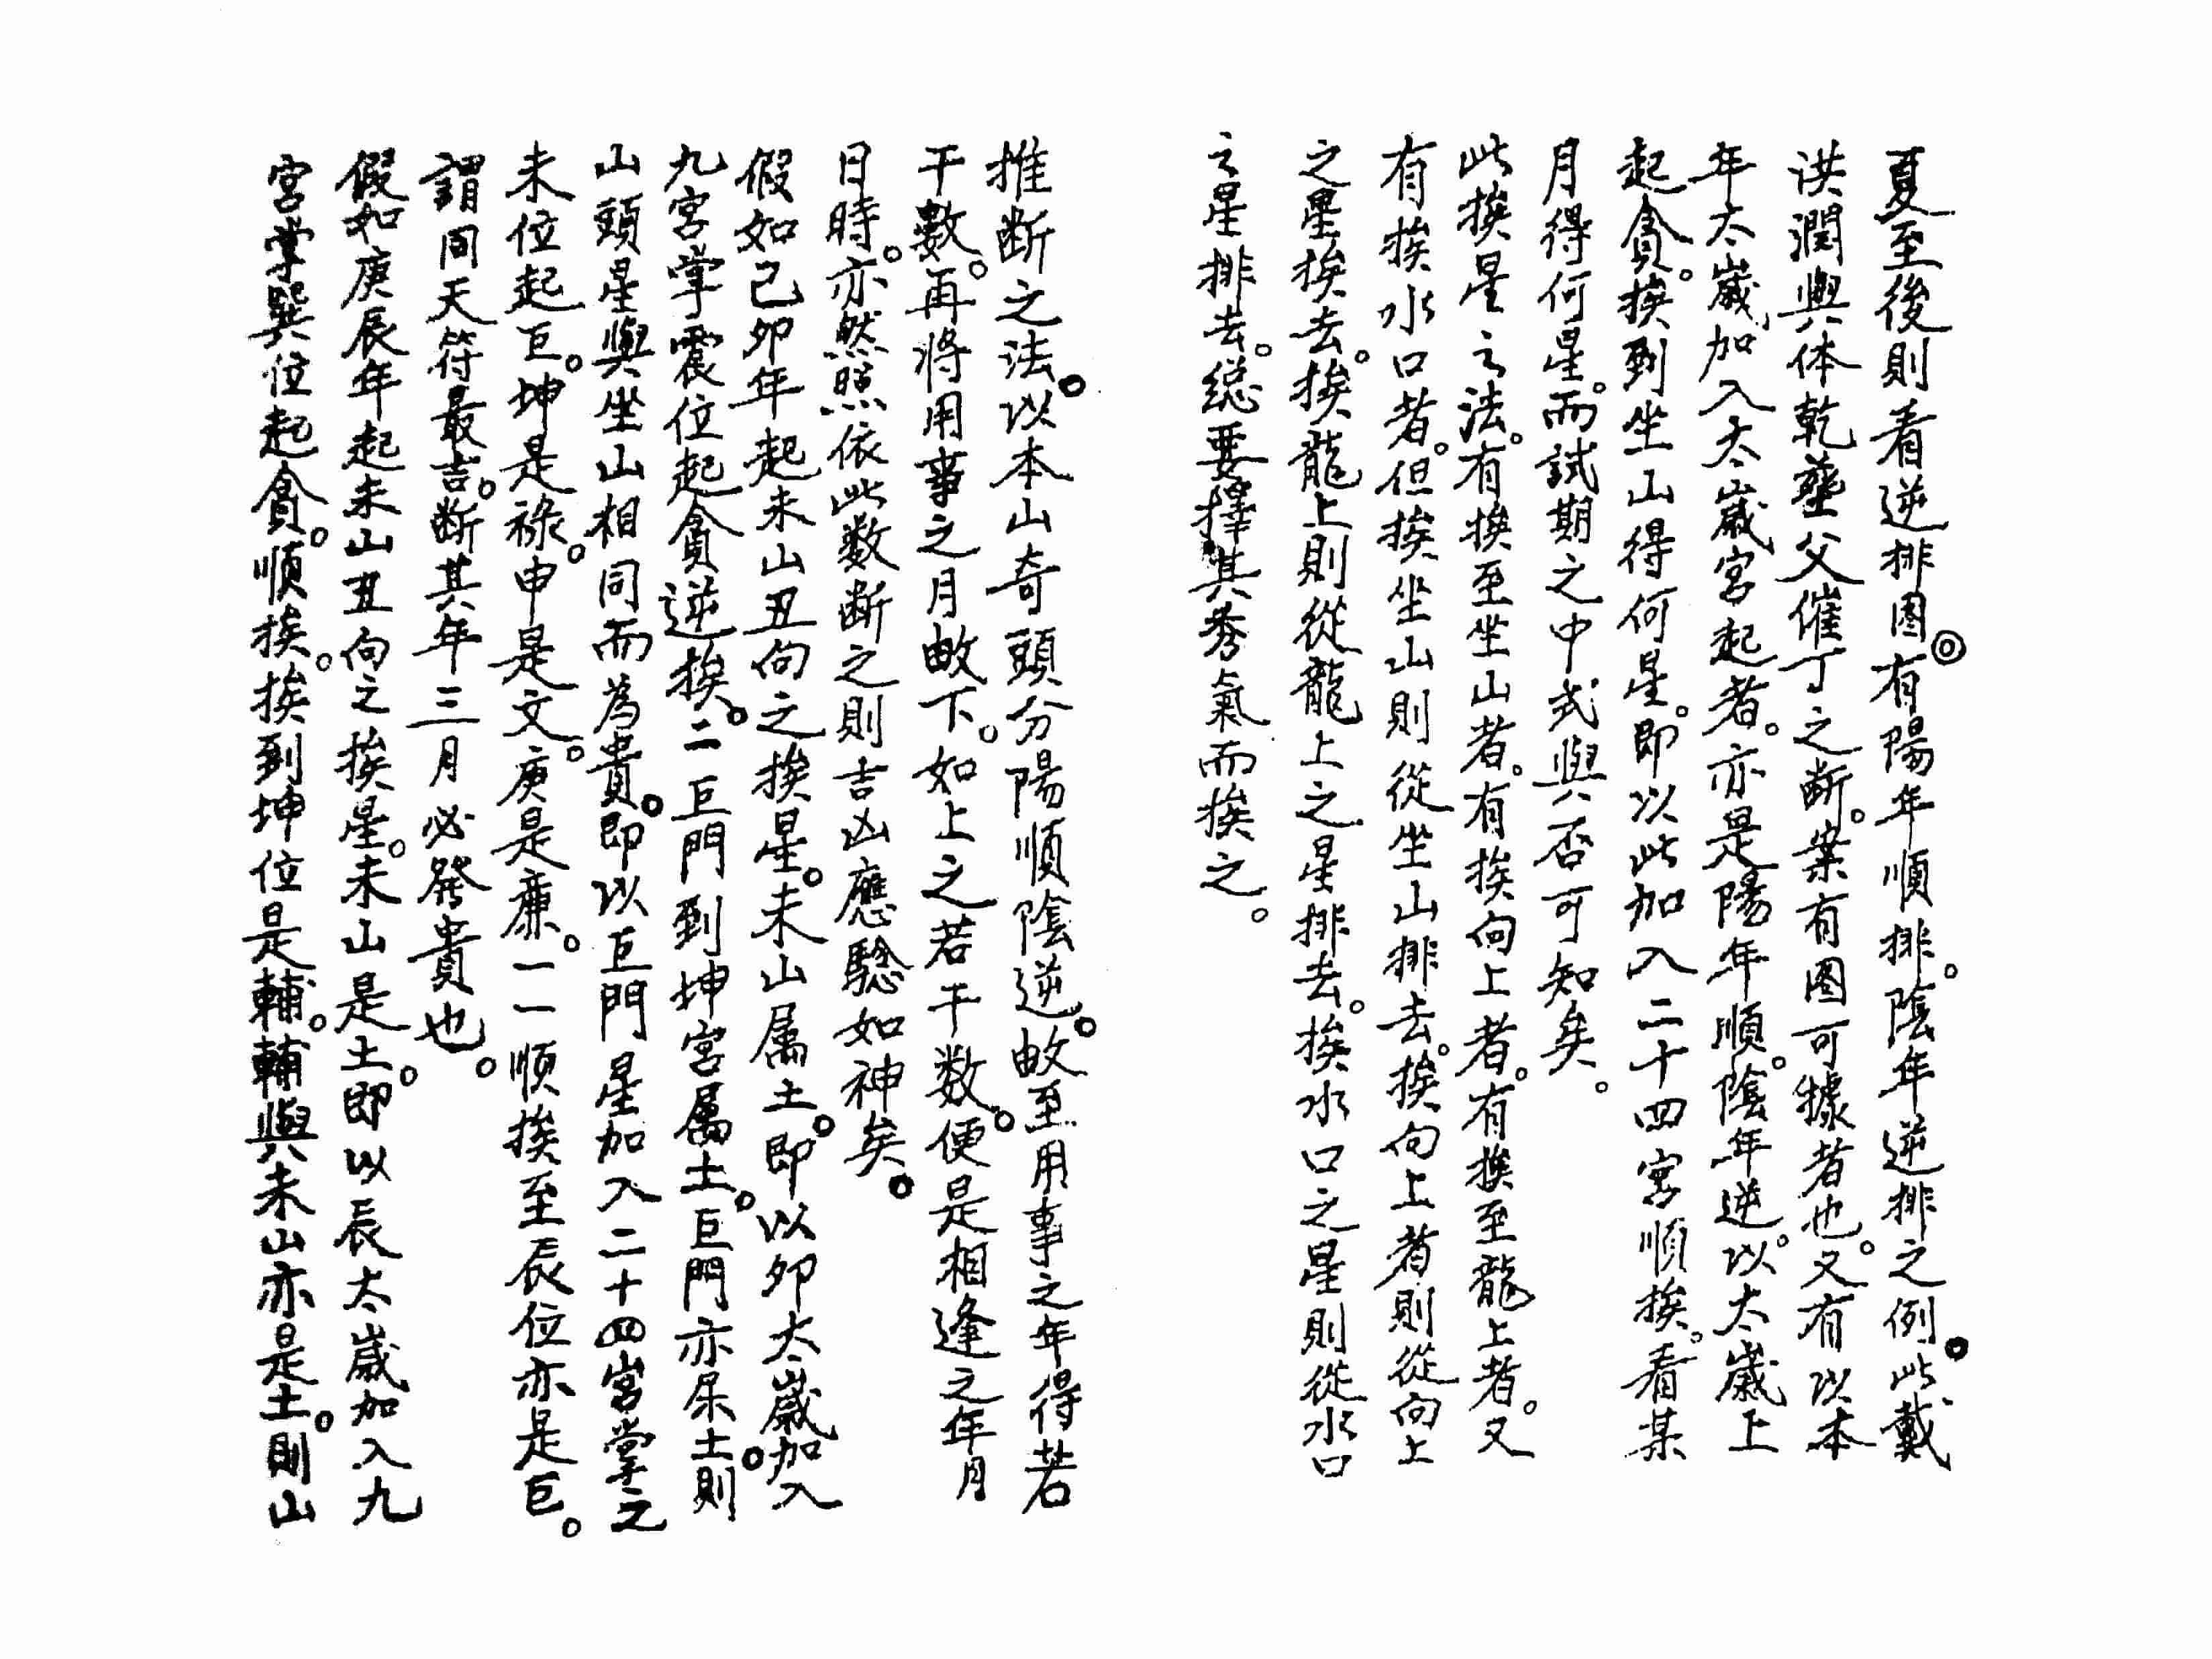 夏至後則看逆排图。有陽年順排。陰年逆排之例。此戴
洪潤與体乾塟父催丁之断。案有图可據者也。又有以本
年太歲加入太歲宮起者。亦是陽年順。陰年逆。以太歲上
起貪。挨到坐山得何星。即以此加入二十四宮順挨。看某
月得何星。而試期之中式與否可知矣。
此挨星之法。有挨至坐山者。有挨向上者。有挨至龍上者。又
有挨水口者。但挨坐山則從坐山排去。挨向上者則從向上
之星挨去。挨龍上則從龍上之星排去。挨水口之星則從水口
之星排去。総要擇其秀氣而挨之。
推断之法。以本山奇頭分陽順陰逆。畝至用事之年得若
干數。再将用事之月畝下。如上之若干数。便是相逢之年月
日時。亦然照依此数断之則吉凶應騐如神矣。
假如己卯年起未山丑向之挨星。未山属土。即以卯太歲加入
九宮掌震位起貪逆挨。二巨門到坤宮属土。巨門亦屎土。則
山頭星與坐山相同而為貴。即以巨門星加入二十四宮掌之
未位起巨。坤是祿。申是文。庚是廉。一一順挨至辰位亦是巨。
謂同天符最吉。断其年三月必発貴也。
假如庚辰年起未山丑向之挨星。未山是土。即以辰太歲加入九
宮掌巽位起貪。順挨。挨到坤位是輔。輔與未山亦是土。則山